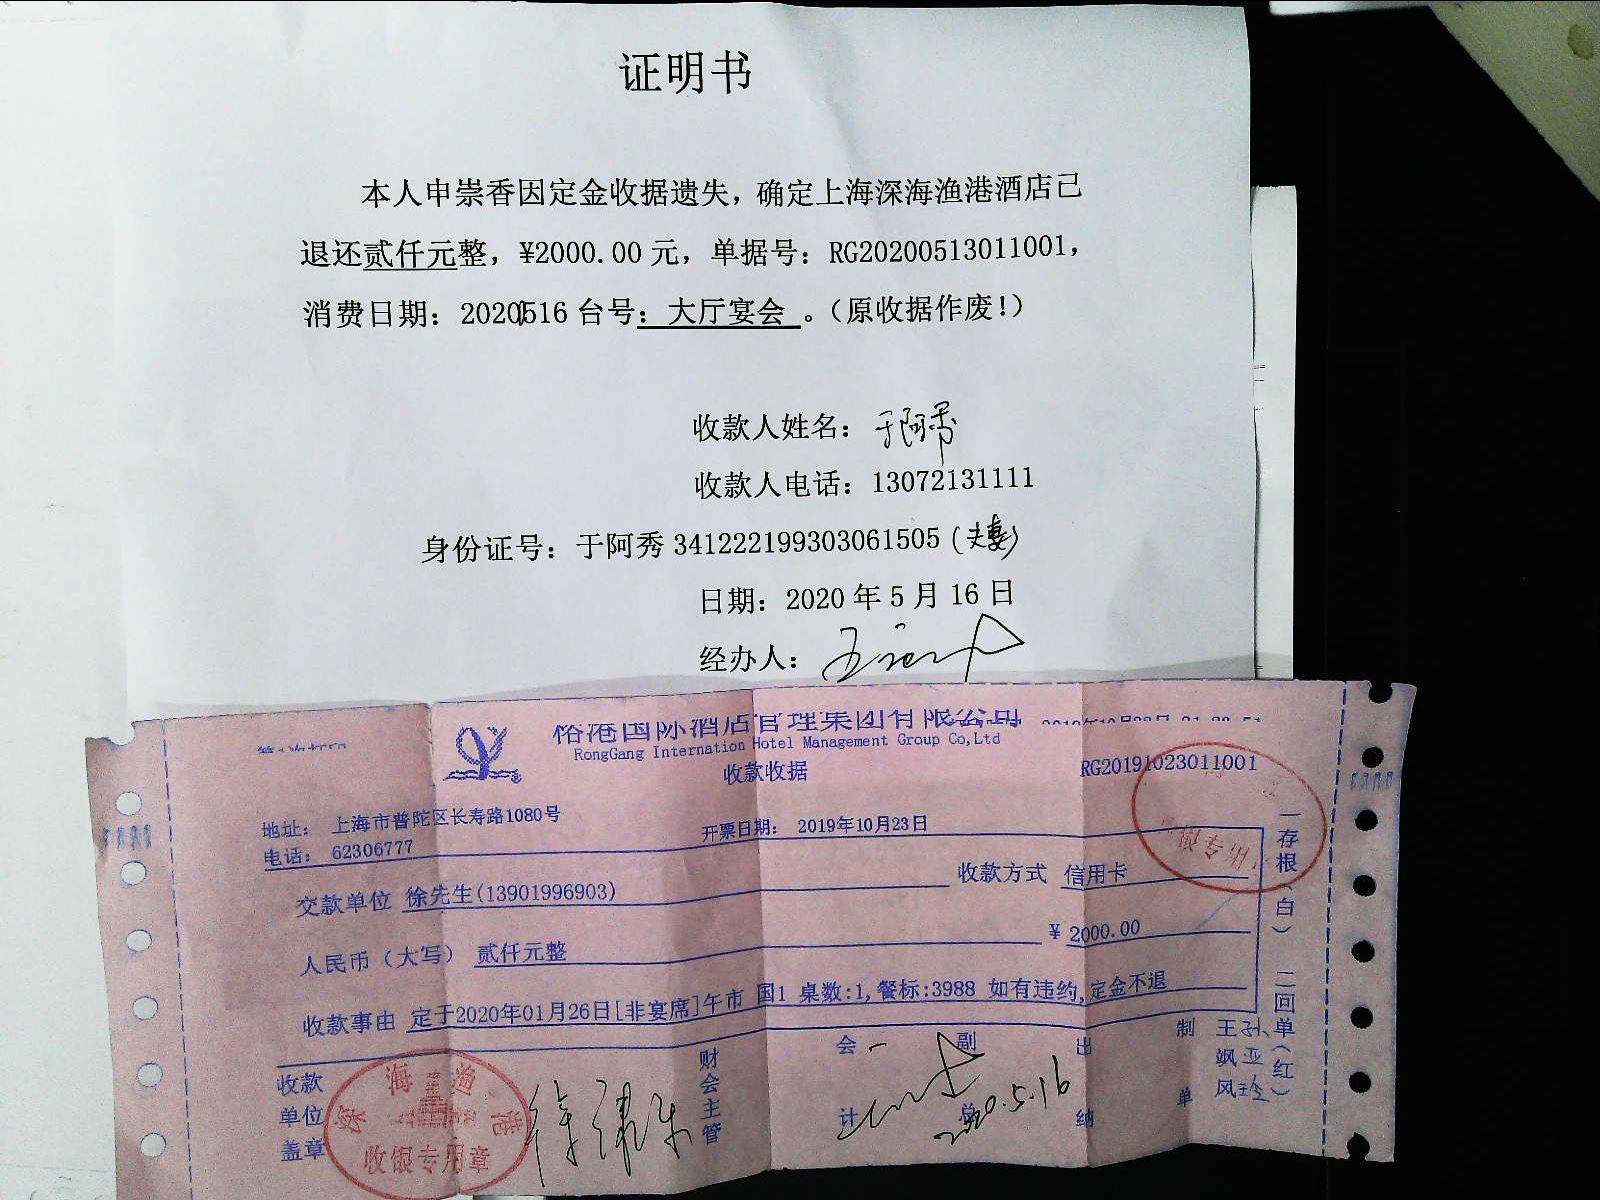 证明书
本人申崇香因定金收据遗失，确定上海深海渔港酒店已
退还贰仟元整，¥2000.00 元，单据号：RG20200513011001，
消费日期：20200516 台号：大厅宴会 。（原收据作废！）
收款人姓名：于阿秀
收款人电话：13072131111
身份证号：于阿秀 341222199303061505（夫妻）
日期：2020 年 5 月 16 日
经办人：
港国际酒店管理集团有限公司
RongGang Internation Hotel Management Group Co,Ltd
收款收据
RG20191023011001
地址： 上海市普陀区长寿路1080号
开票日期： 2019年10月23日
电话： 62306777
交款单位 徐先生(13901996903)
收款方式 信用卡
人民币（大写） 贰仟元整
¥ 2000.00
收款事由 定于2020年01月26日[非宴席]午市 国1 桌数:1,餐标:3988 如有违约,定金不退
一存根（白） 二回单（红）
收款单位盖章
深海渔港
收银专用章
财会主管
会计
副总
2020.5.16
出纳
制单
王飒风
孙亚玲